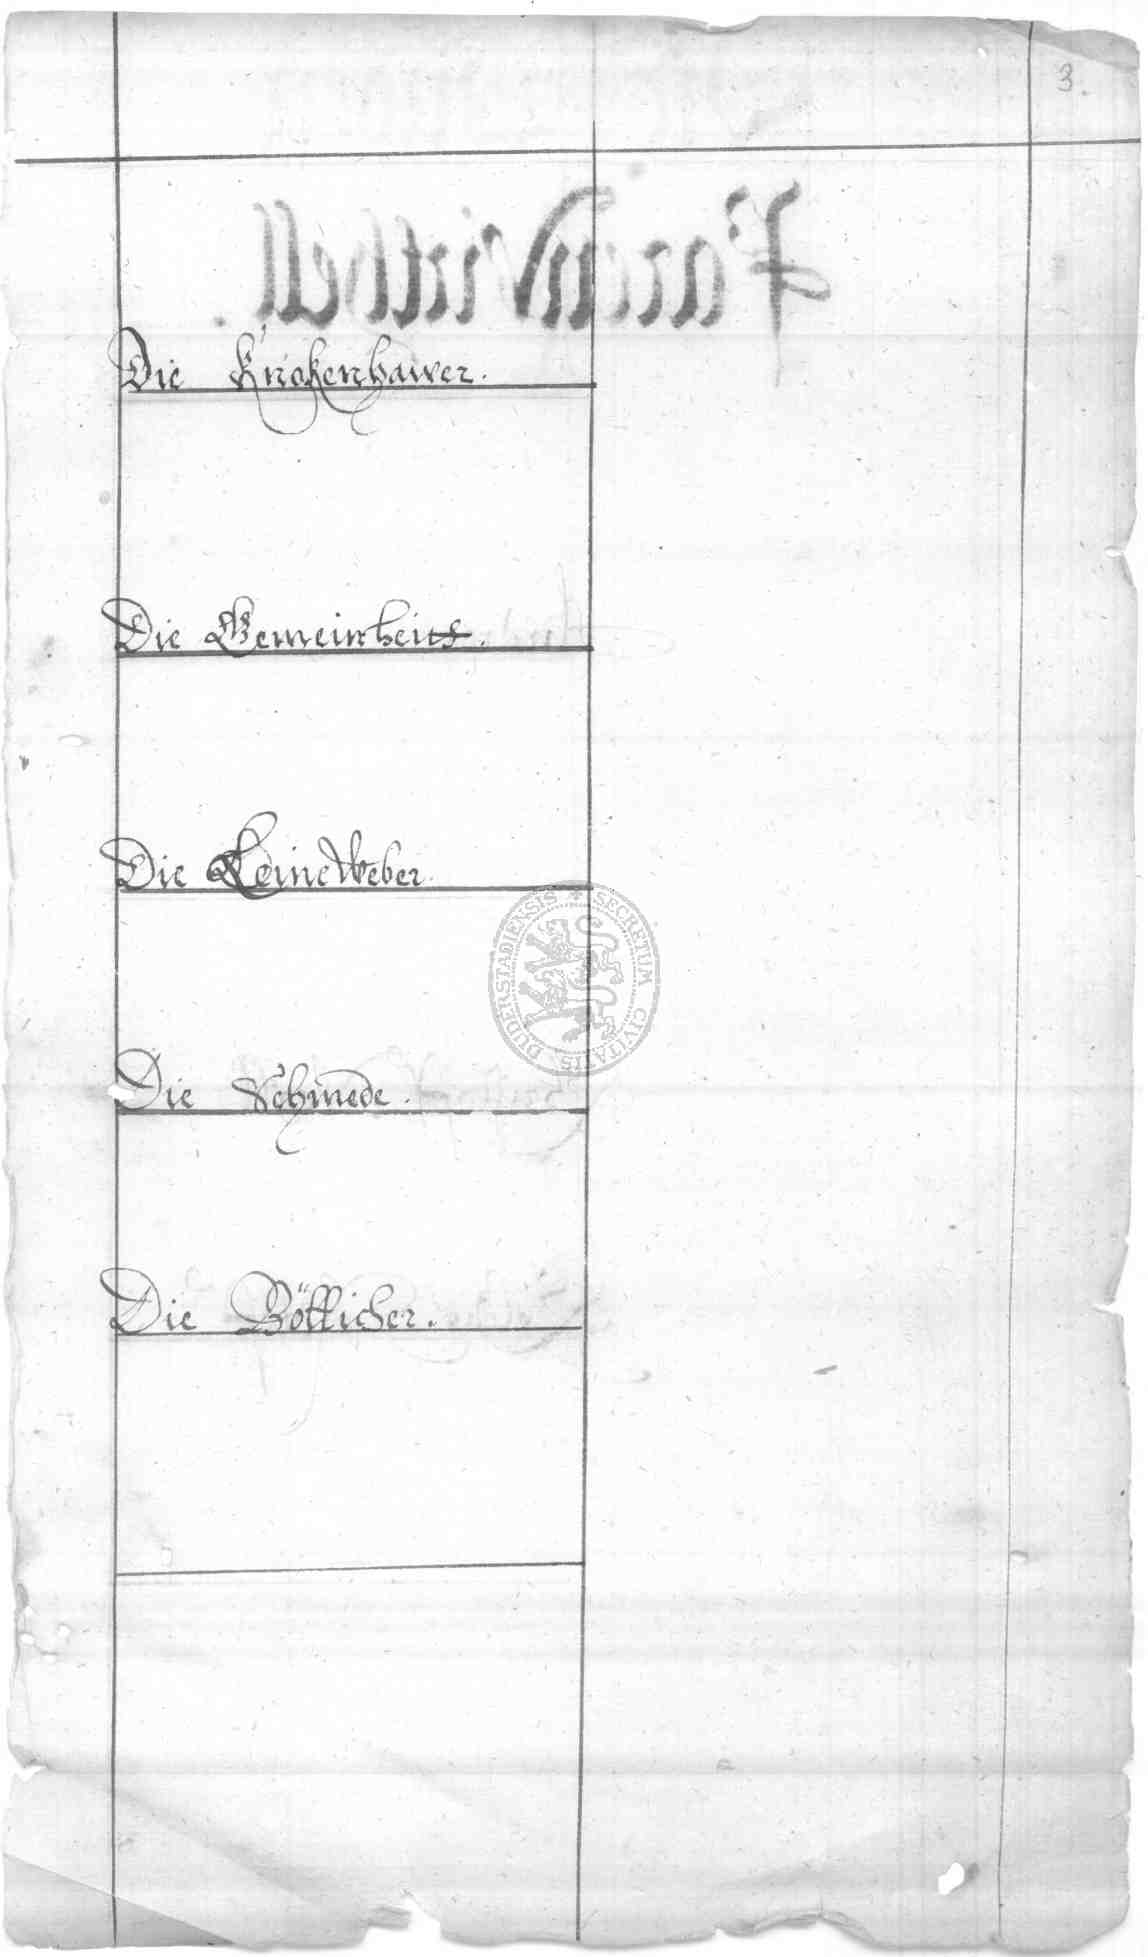 3.
Die Knokenhawer.
Die Gemeinheitt.
Die LeineWeber.
Die Schmede.
Die Bötticher.
SECRETUM CIVITATIS DUDERSTADIENSIS